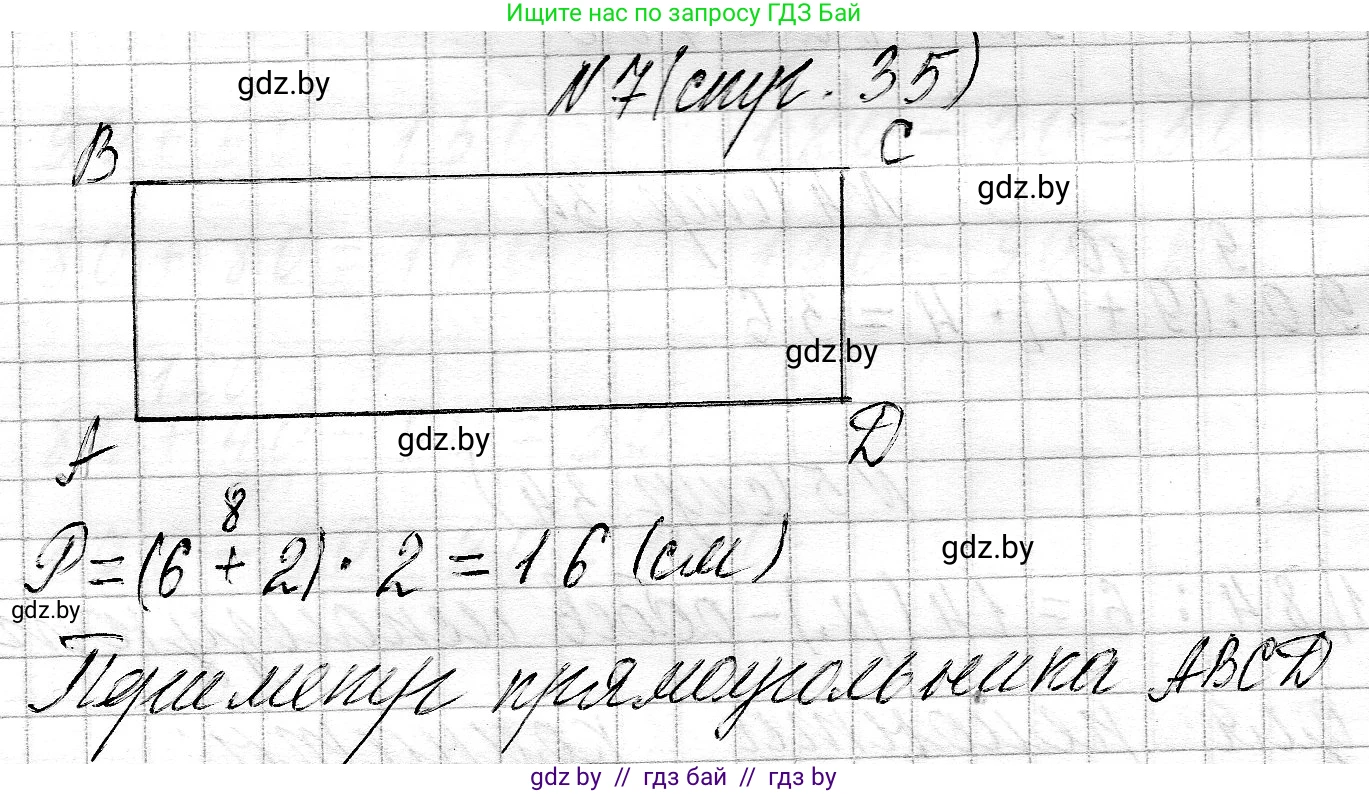 Ищите нас по запросу ГДЗ Бай
gdz.by
N 7 (стр. 35)
B
C
gdz.by
gdz.by
A
gdz.by
D
8
P = (6 + 2) · 2 = 16 (см)
gdz.by
gdz.by
Периметр прямоугольника ABCD
gdz by // гдз бай // гдз by